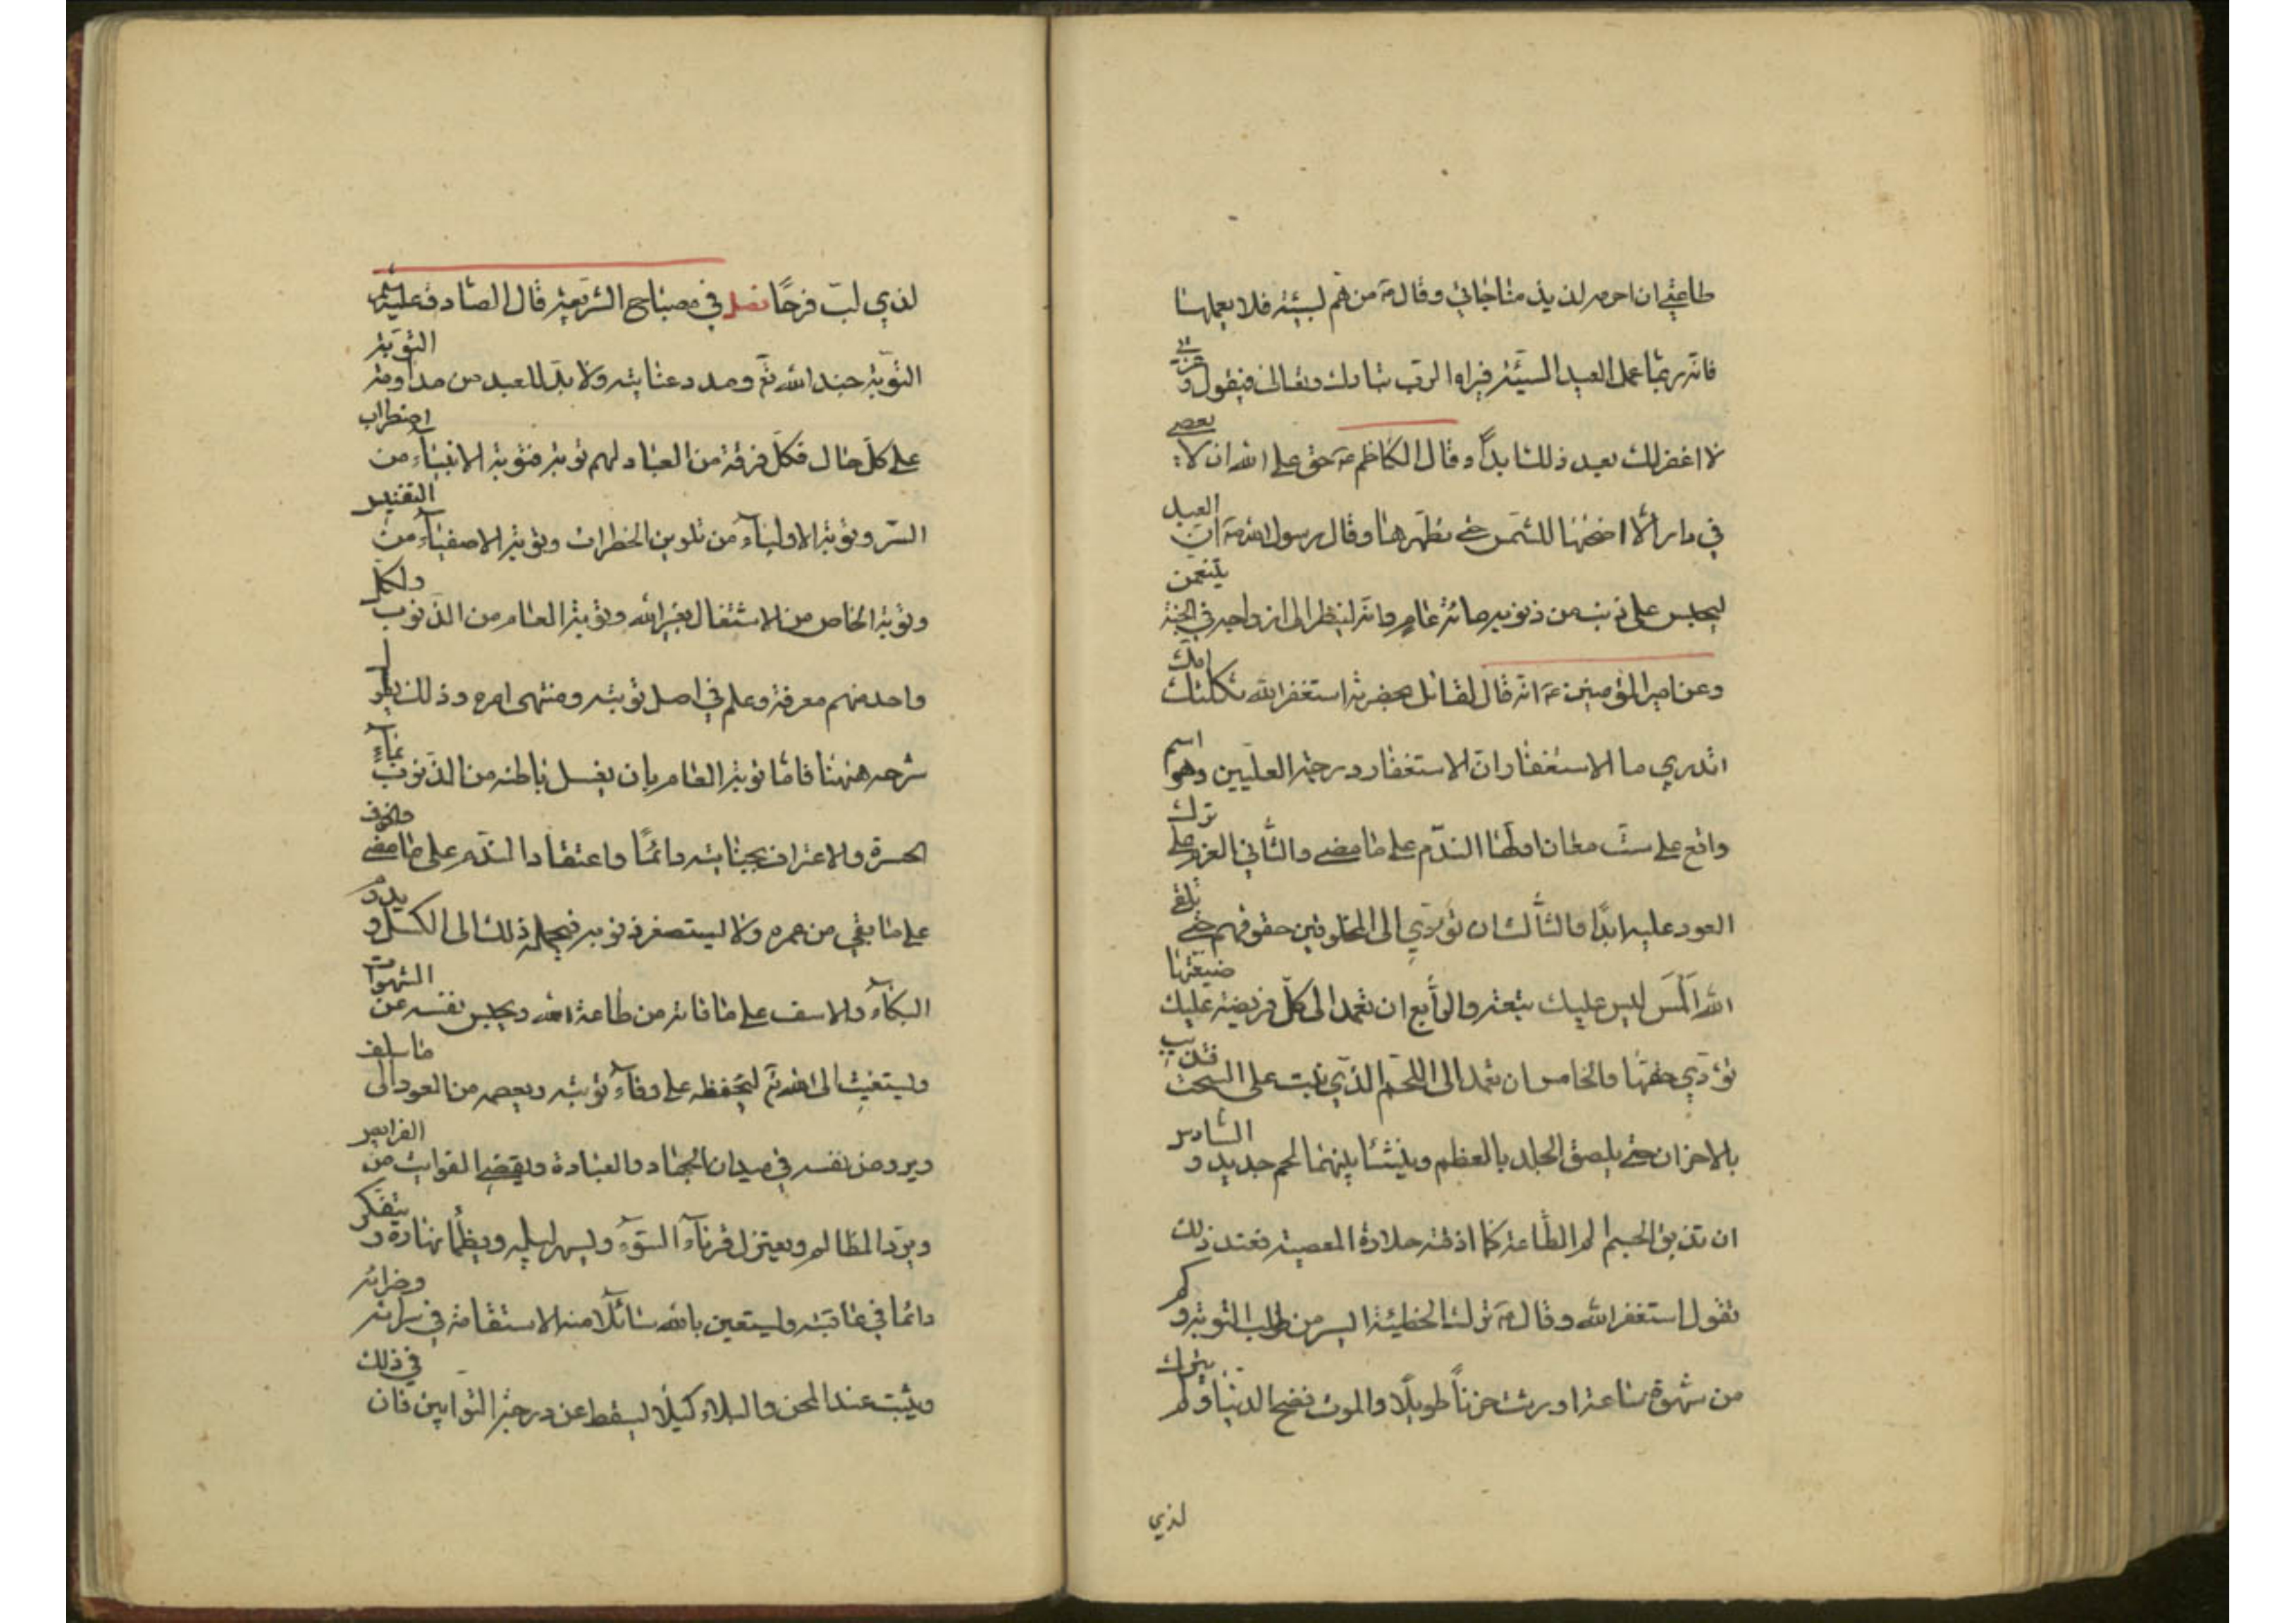 طاعتي ان احرمه لذيذ مناجاتي وقال ع من هم لسيئة فلا يعملها
فانه ربما عمل العبد السيئة فيراه الرب تبارك وتعالى فيقول وعزتي
لا اغفر لك بعد ذلك ابداً وقال الكاظم ع حق على الله ان لا يعصى
في دار الا اضحها للشمس حتى تطهرها وقال رسول الله ص ان العبد
ليحبس على ذنب من ذنوبه مائة عام وانه لينظر الى ازواجه في الجنة يتنعمن
وعن امير المؤمنين ع انه قال لقائل بحضرته استغفر الله ثكلتك امك
اتدري ما الاستغفار ان الاستغفار درجة العليين وهو اسم
واقع على ست معان اولها الندم على ما مضى والثاني العزم على ترك
العود عليه ابداً والثالث ان تؤدي الى المخلوقين حقوقهم حتى تلقى
الله املس ليس عليك تبعة والرابع ان تعمد الى كل فريضة عليك ضيعتها
تؤدي حقها والخامس ان تعمد الى اللحم الذي نبت على السحت فتذيبه
بالاحزان حتى يلصق الجلد بالعظم وينشأ بينهما لحم جديد والسادس
ان تذيق الجسم الم الطاعة كما اذقته حلاوة المعصية فعند ذلك
تقول استغفر الله وقال ع ترك الخطيئة ايسر من طلب التوبة وكم
من شهوة ساعة اورثت حزناً طويلاً والموت فضح الدنيا ولم يترك
لذي
لذي لب فرحاً فصل في مصباح الشريعة قال الصادق عليه السلم
التوبة حبل الله تع ومدد عنايته ولا بد للعبد من مداومة التوبة
على كل حال فكل فرقة من العباد لهم توبة فتوبة الانبياء من اضطراب
السر وتوبة الاولياء من تلوين الخطرات وتوبة الاصفياء من التنفيس
وتوبة الخاص من الاشتغال بغير الله وتوبة العام من الذنوب ولكل
واحد منهم معرفة وعلم في اصل توبته ومنتهى امره وذلك يطول
شرحه ههنا فاما توبة العام بان يغسل باطنه من الذنوب بماء
الحسرة والاعتراف بجنايته دائماً واعتقاد الندم على ما مضى والخوف
على ما بقي من عمره ولا يستصغر ذنوبه فيحمله ذلك الى الكسل ويديم
البكاء والاسف على ما فاته من طاعة الله ويحبس نفسه عن الشهوات
ويستغيث الى الله تع ليحفظه على وفاء توبته ويعصمه من العود الى ما سلف
ويروض نفسه في ميدان الجهاد والعبادة ويقضي الفوايت من الفرايض
ويرد المظالم ويعتزل قرناء السوء ويسهر ليله ويظمأ نهاره ويتفكر
دائما في عاقبته ويستعين بالله سائلا منه الاستقامة في سرائه وضرائه
ويثبت عند المحن والبلاء كيلا يسقط عن درجة التوابين فان في ذلك